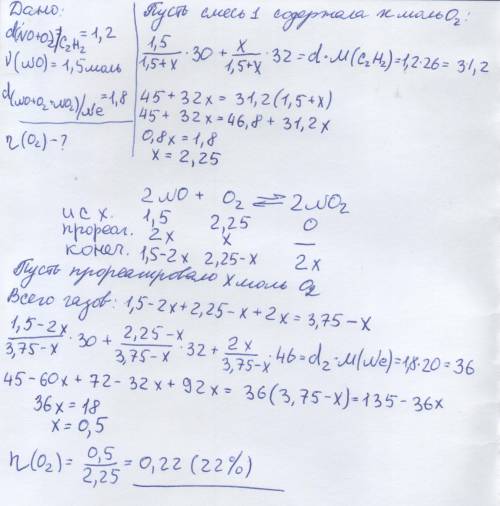 Дано:
d(NO+O₂)/C₂H₂=1,2
ν(NO)=1,5моль
d(NO+O₂+NO₂)/Ne=1,8
η(O₂)-?
Пусть смесь 1 содержала x моль O₂:
1,5/1,5+x · 30 + x/1,5+x · 32 = d · M(C₂H₂)=1,2·26=31,2
45+32x=31,2(1,5+x)
45+32x=46,8+31,2x
0,8x=1,8
x=2,25
2NO + O₂ ⇌ 2NO₂
исх. 1,5 2,25 0
прореаг. 2x x —
конеч. 1,5-2x 2,25-x 2x
Пусть прореагировало x моль O₂
Всего газов: 1,5-2x+2,25-x+2x=3,75-x
1,5-2x/3,75-x · 30 + 2,25-x/3,75-x · 32 + 2x/3,75-x · 46 = d₂ · M(Ne)=1,8·20=36
45-60x+72-32x+92x=36(3,75-x)=135-36x
36x=18
x=0,5
η(O₂)= 0,5/2,25 = 0,22 (22%)